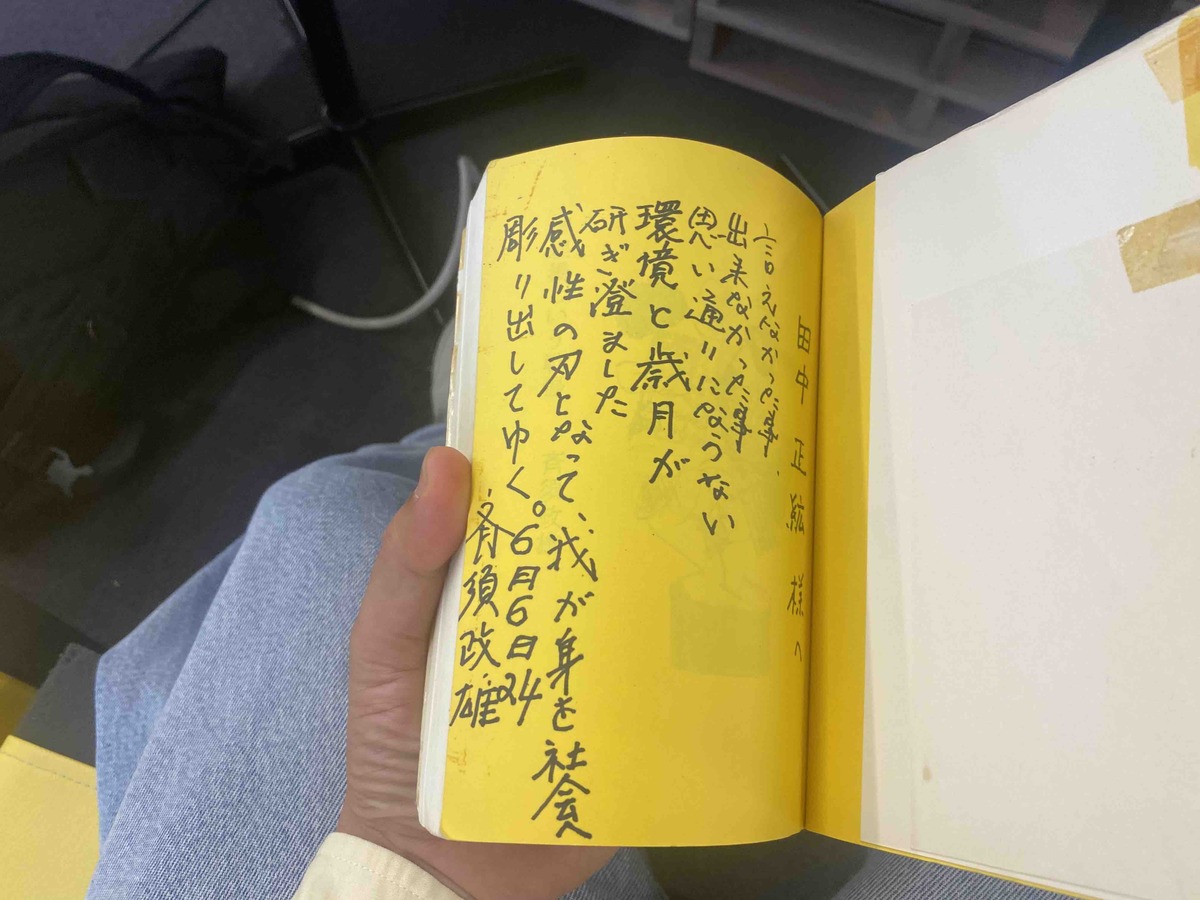 田中 正紘 様へ
言えなかった事
出来なかった事
思い通りにならない
環境と歳月が
研ぎ澄ました
感性の刃となって、我が身を社会へ
彫り出してゆく。6月6日24
有須政雄